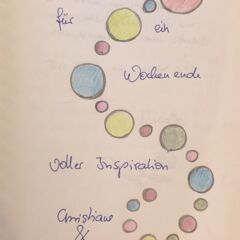 für ein
Wochenende
voller Inspiration
Christiane
&